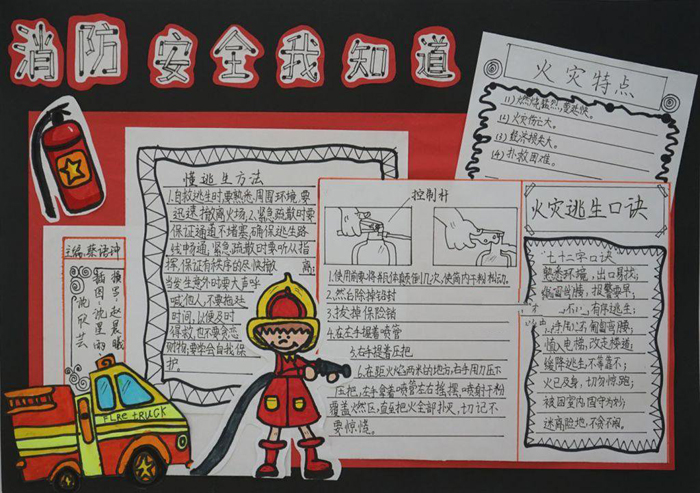 消防安全我知道
火灾特点
(1)燃烧猛烈,蔓延快。
(2)火灾伤亡大。
(3)经济损失大。
(4)扑救困难。
懂逃生方法
1.自救逃生时,要熟悉周围环境,要
迅速撤离火场,2、紧急疏散时要
保证通道不堵塞,确保逃生路
线畅通,紧急疏散时要听从指
挥,保证有秩序的尽快撤离
当发生意外时要大声呼
喊他人,不要拖延
时间,以便及时
得救,也不要贪恋
财物,要学会自我保
护。
主编
插图
沈星
控制杆
1.使用前要将瓶体颠倒几次,使筒内干粉松动。
2.然后除掉铅封
3.拔掉保险销
4.在左手握着喷管
5.右手提着压把
6.在距火焰两米的地方,右手用力压下
压把,左手拿着喷管左右摇摆,喷射干粉
覆盖燃烧区,直至把火全部扑灭,切记不
要惊慌。
火灾逃生口诀
七十二字口诀
熟悉环境,出口易找;
有序逃生;
匍匐弯腰;
慎入电梯,改走楼道;
缓降逃生,不等靠不;
火已及身,切勿惊跑;
被困室内,固守为妙;
远离险地,不贪不闹。
FIRE TRUCK